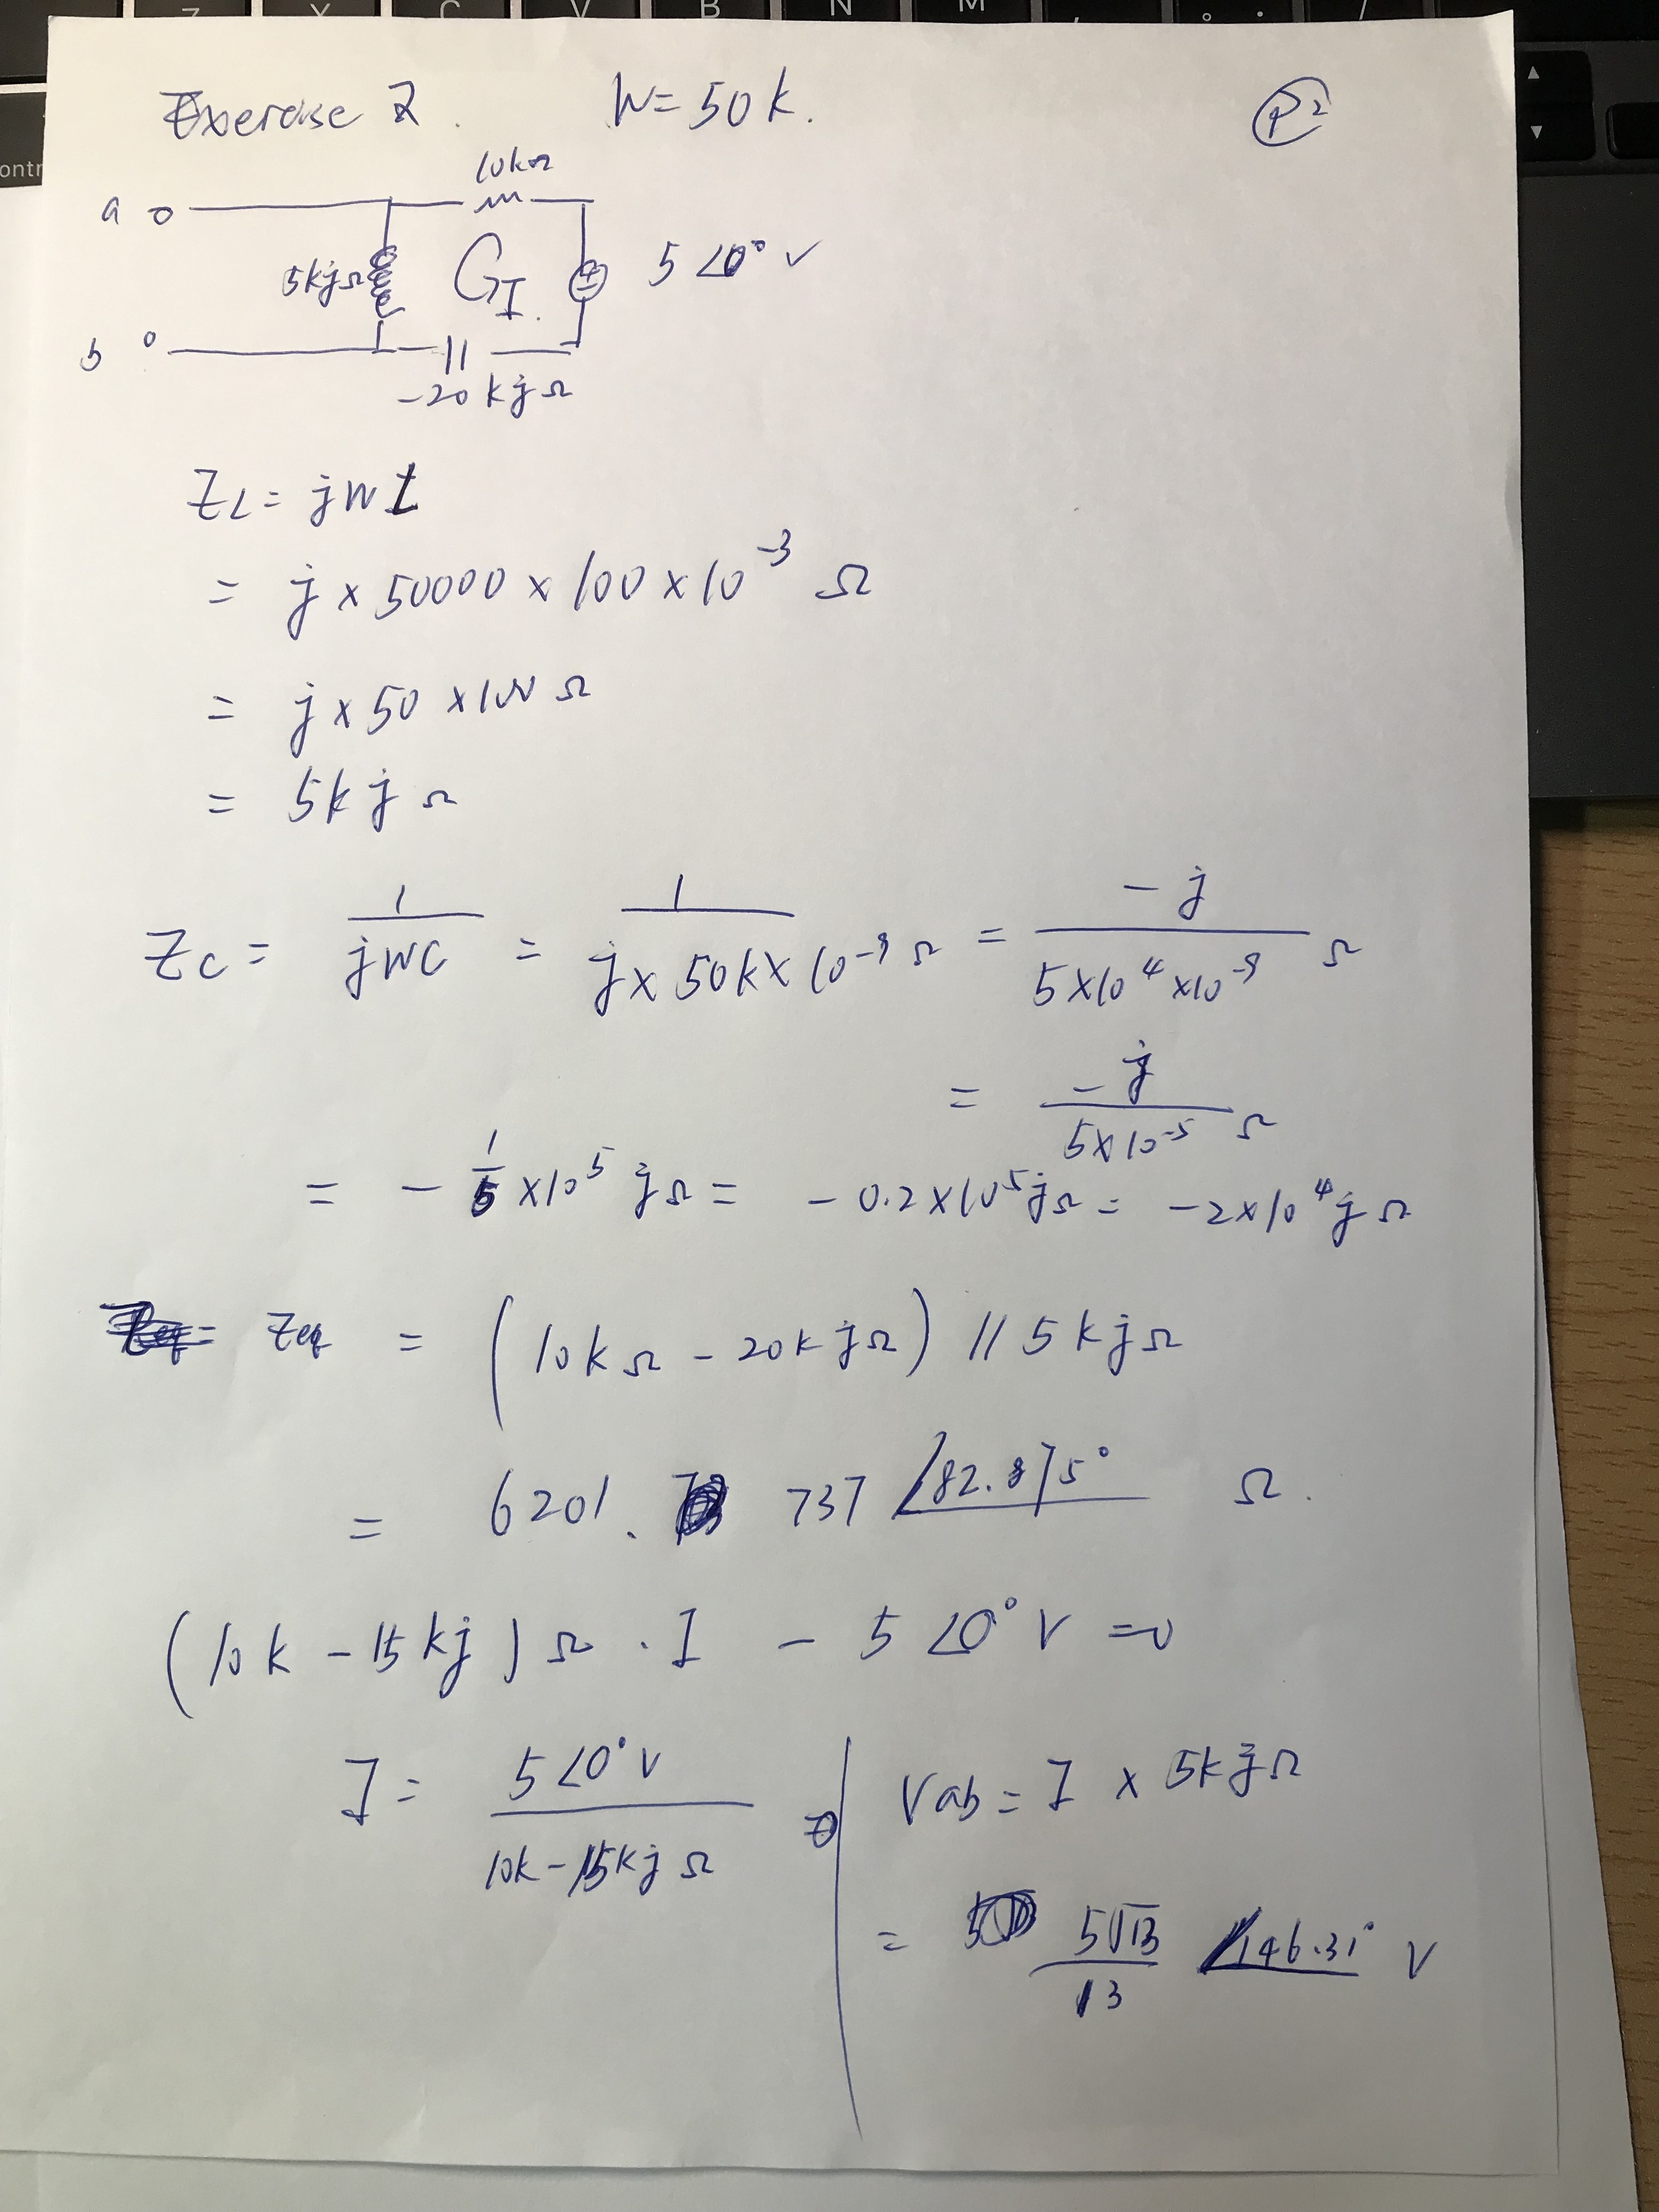 Z X C V B N M , 。 . /
▲
▼
Contr
Exercise 2. W = 50 k. P2
10kΩ
a
5kjΩ I. + - 5 ∠0° V
b
-20 kjΩ
ZL = jWL
= j × 50000 × 100 × 10^-3 Ω
= j × 50 × 100 Ω
= 5k j Ω
Zc = 1/(jWC) = 1/(j × 50k × 10^-9) Ω = -j/(5×10^4 ×10^-9) Ω
= -j/(5×10^-5) Ω
= - 1/5 ×10^5 jΩ = -0.2×10^5 jΩ = -2×10^4 jΩ
Zeq = (10kΩ - 20k jΩ) // 5kjΩ
= 6201.737 ∠82.875° Ω.
(10k - 15kj) Ω · I - 5 ∠0° V = 0
I = 5∠0° V/(10k-15kj Ω)
Vab = I × 5kjΩ
= 5√13/13 ∠146.31° V